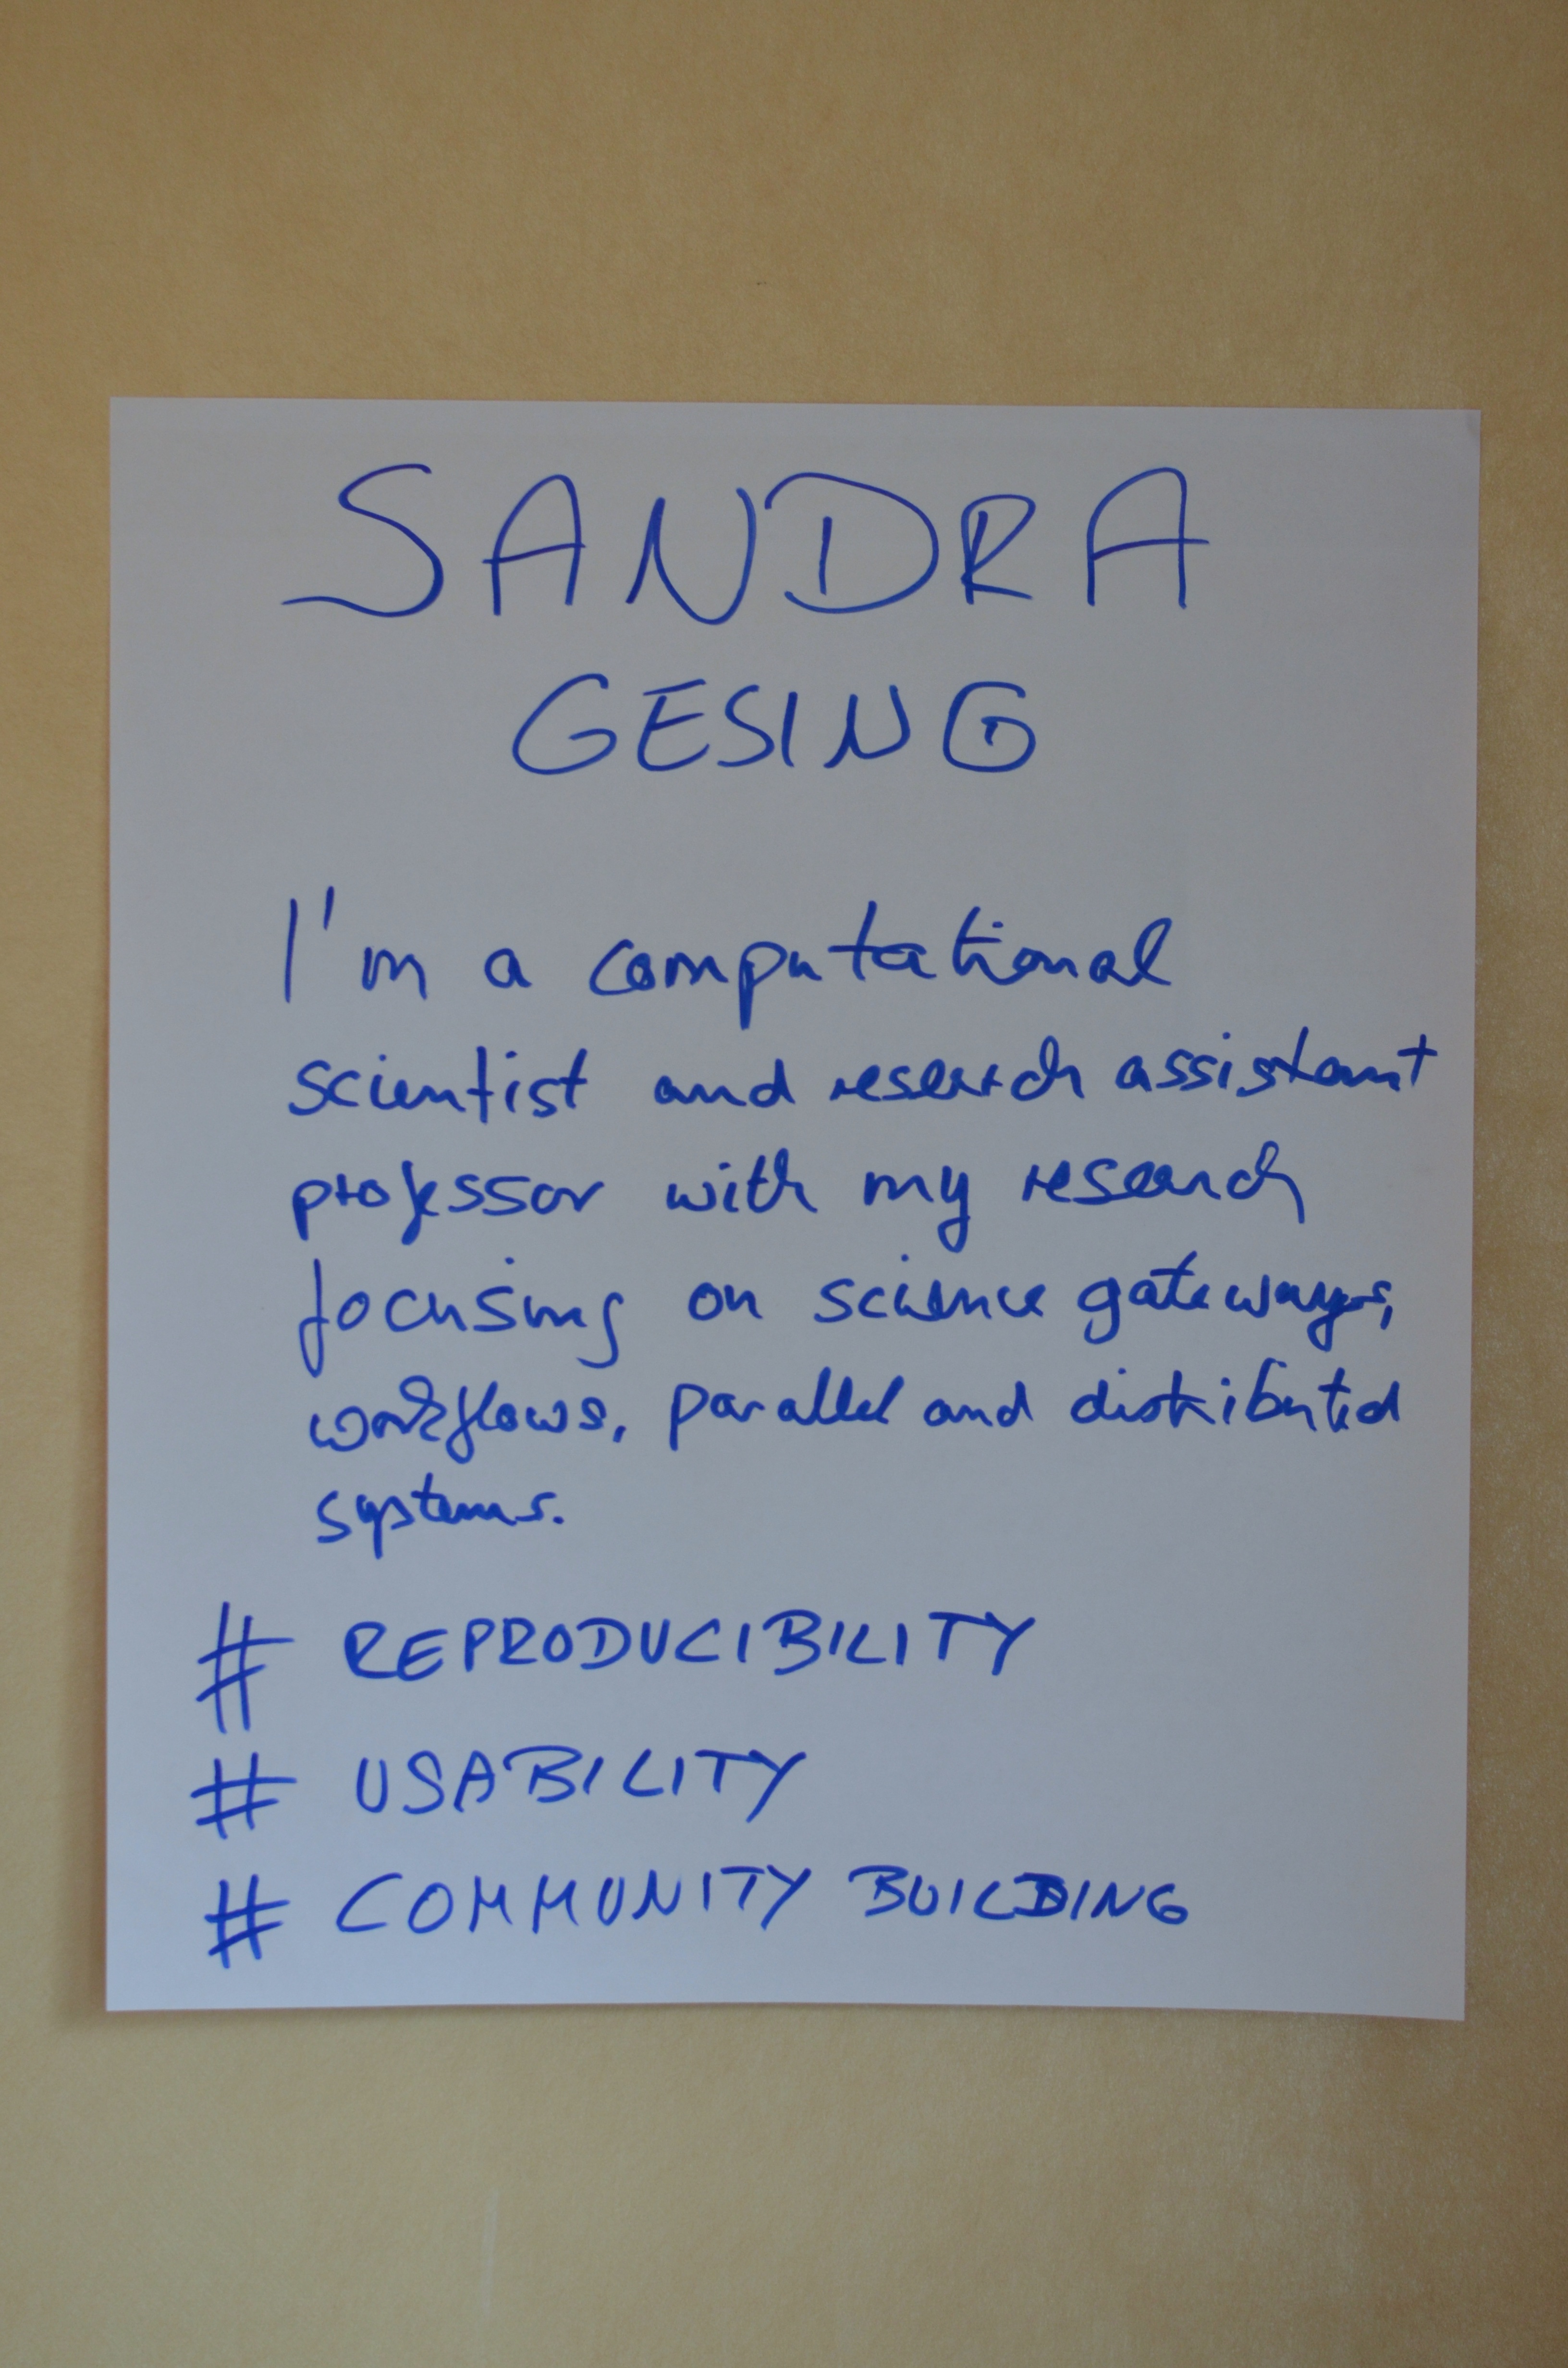 SANDRA
GESING
I'm a computational
scientist and research assistant
professor with my research
focusing on science gateways,
workflows, parallel and distributed
systems.
# REPRODUCIBILITY
# USABILITY
# COMMUNITY BUILDING